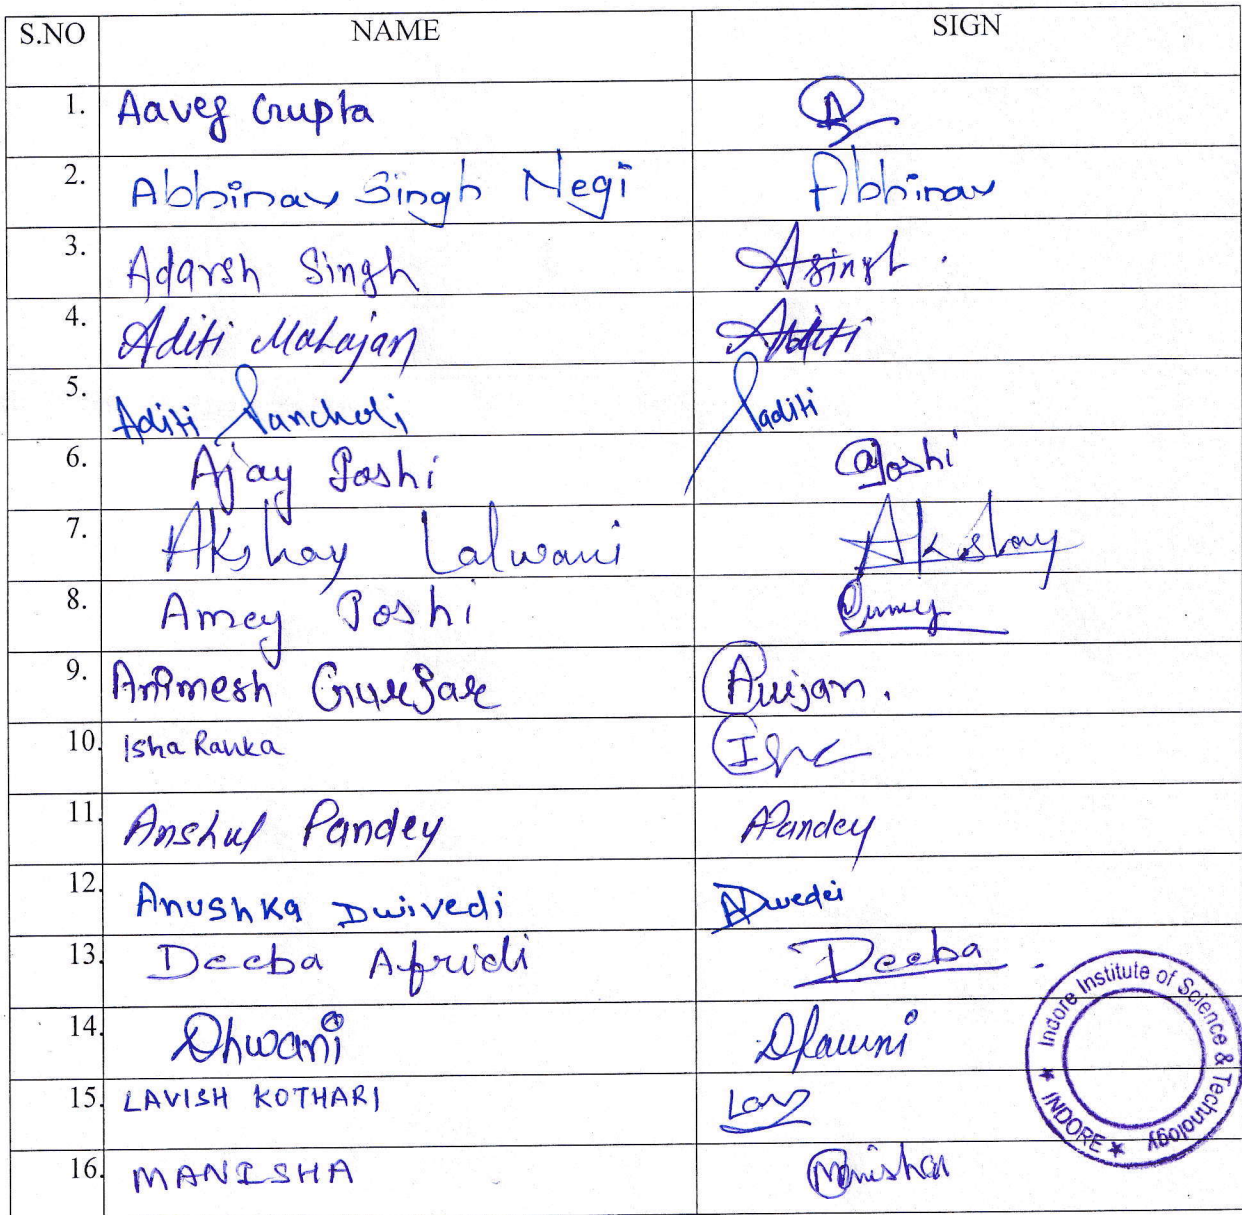 S.NO NAME SIGN
1. Aaveg Gupta A
2. Abhinav Singh Negi Abhinav
3. Adarsh Singh Asingh.
4. Aditi Mahajan Aditi
5. Aditi Pancholi Paditi
6. Ajay Joshi aJoshi
7. Akshay Lalwani Akshay
8. Amey Joshi
9. Animesh Gurjar
10. Isha Ranka
11. Anshul Pandey APandey
12. Anushka Dwivedi ADwedei
13. Deeba Afridi Deeba.
14. Dhwani
15. LAVISH KOTHARI Lav
16. MANISHA Manisha
Indore Institute of Science & Technology
★ INDORE ★